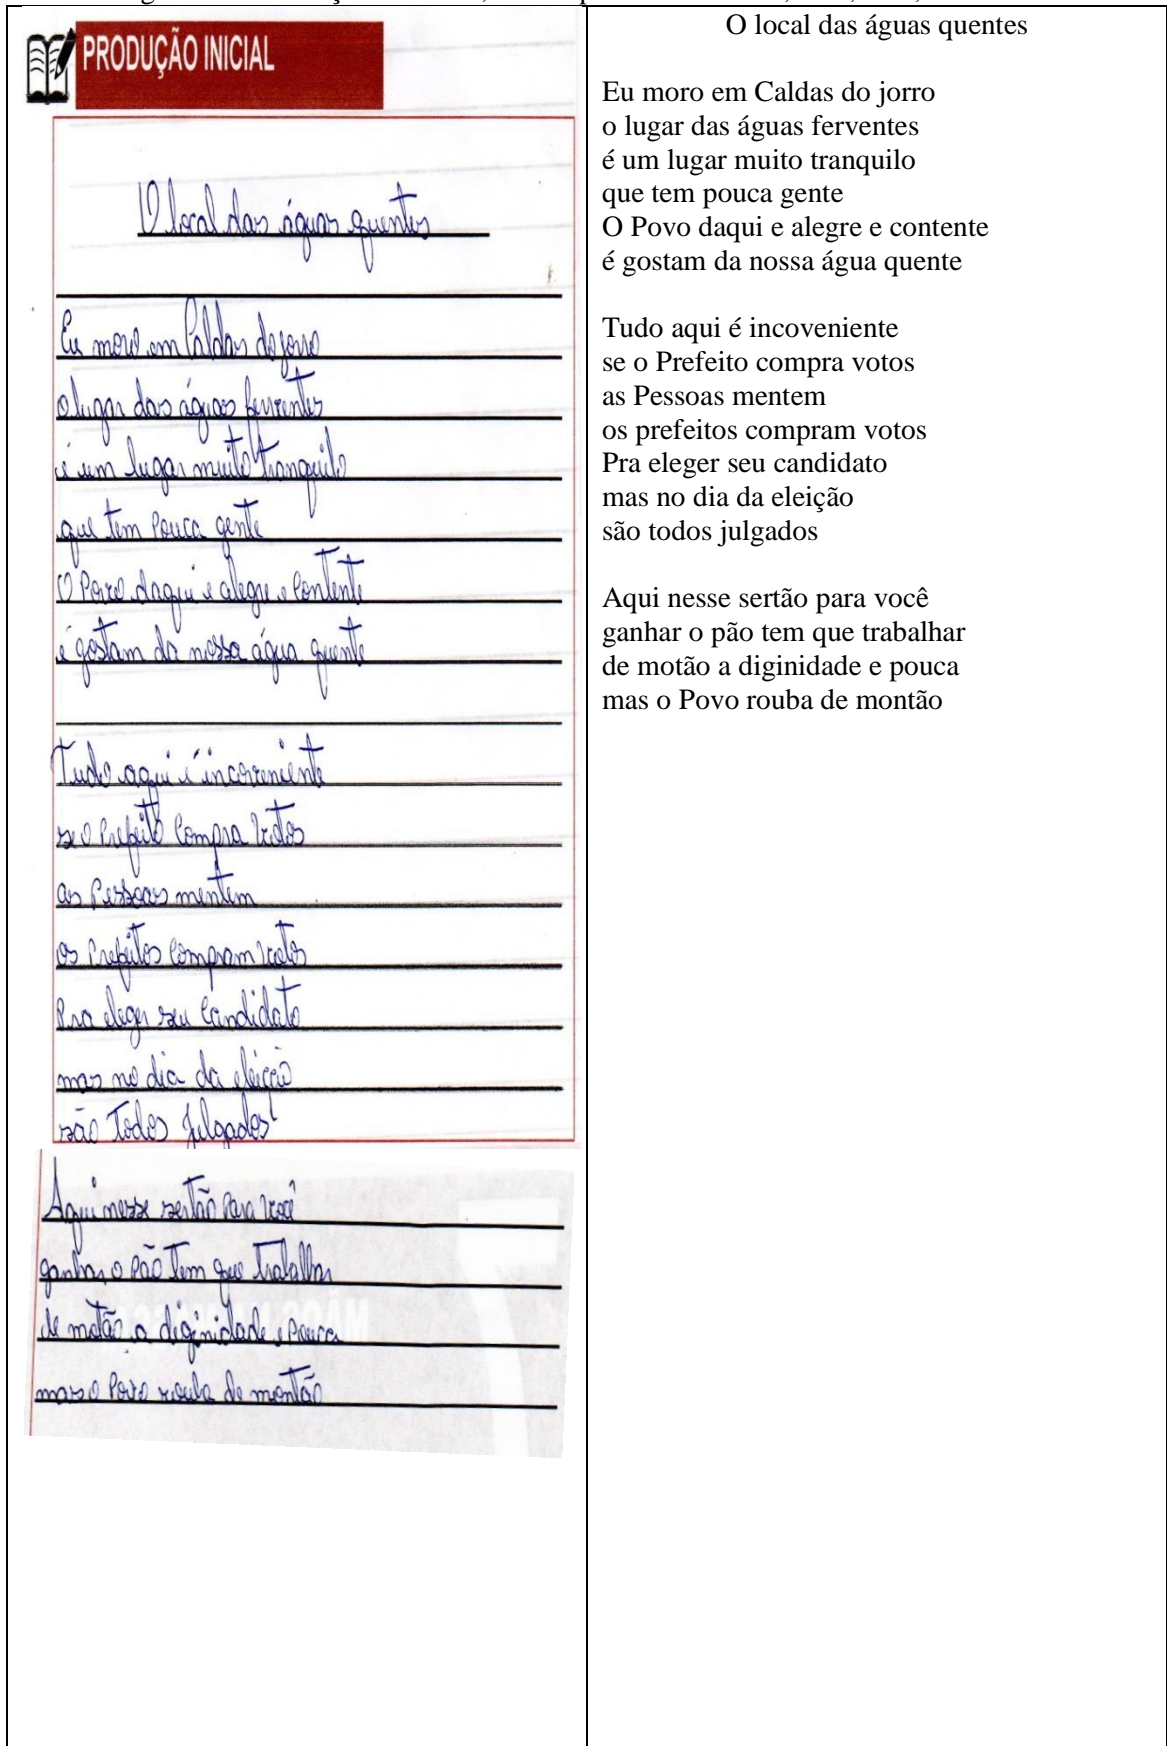 PRODUÇÃO INICIAL
O local das águas quentes
Eu moro em Caldas do jorro
o lugar das águas ferventes
é um lugar muito tranquilo
que tem Pouca gente
O Povo daqui e alegre e Contente
é gostam da nossa água quente
Tudo aqui é incoveniente
se o Prefeito Compra Votos
as Pessoas mentem
os Prefeitos Compram votos
Pra eleger seu Candidato
mas no dia da eleição
são Todos julgados
Aqui nesse sertão Para você
ganhar o Pão Tem que Trabalhar
de motão a diginidade e Pouca
mas o Povo rouba de montão
O local das águas quentes
Eu moro em Caldas do jorro
o lugar das águas ferventes
é um lugar muito tranquilo
que tem pouca gente
O Povo daqui e alegre e contente
é gostam da nossa água quente
Tudo aqui é incoveniente
se o Prefeito compra votos
as Pessoas mentem
os prefeitos compram votos
Pra eleger seu candidato
mas no dia da eleição
são todos julgados
Aqui nesse sertão para você
ganhar o pão tem que trabalhar
de motão a diginidade e pouca
mas o Povo rouba de montão